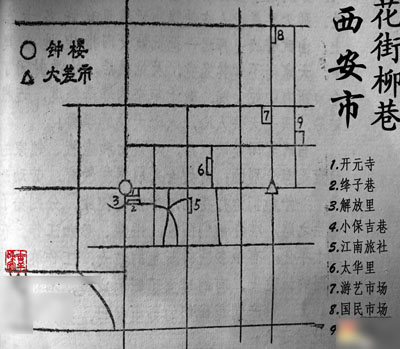 花街柳巷
西安市
钟楼
大差市
8
7
9
6
3
2
5
1.开元寺
2.绛子巷
3.解放里
4.小保吉巷
5.江南旅社
6.太华里
7.游艺市场
8.国民市场
9